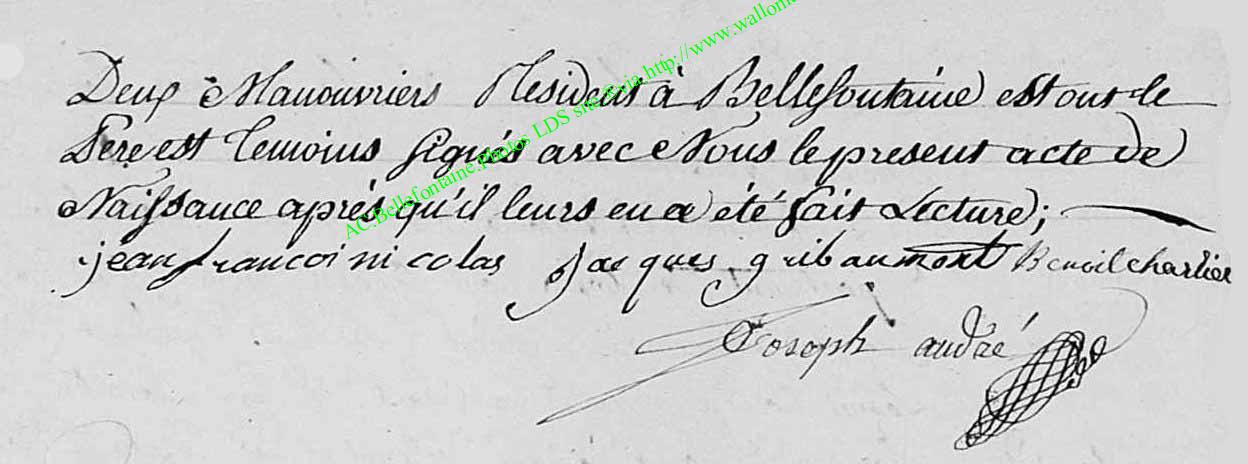 Deux Manouvriers Résident à Bellefontaine est ont le
Pere est Temoins signés avec Nous le present acte de
Naissance après qu'il leurs en a été fait Lecture;
jean francoi nicolas Jacques gribaumont Benoit charlier
Joseph andré
AC.Bellefontaine.Photos LDS site&via http://www.wallonie